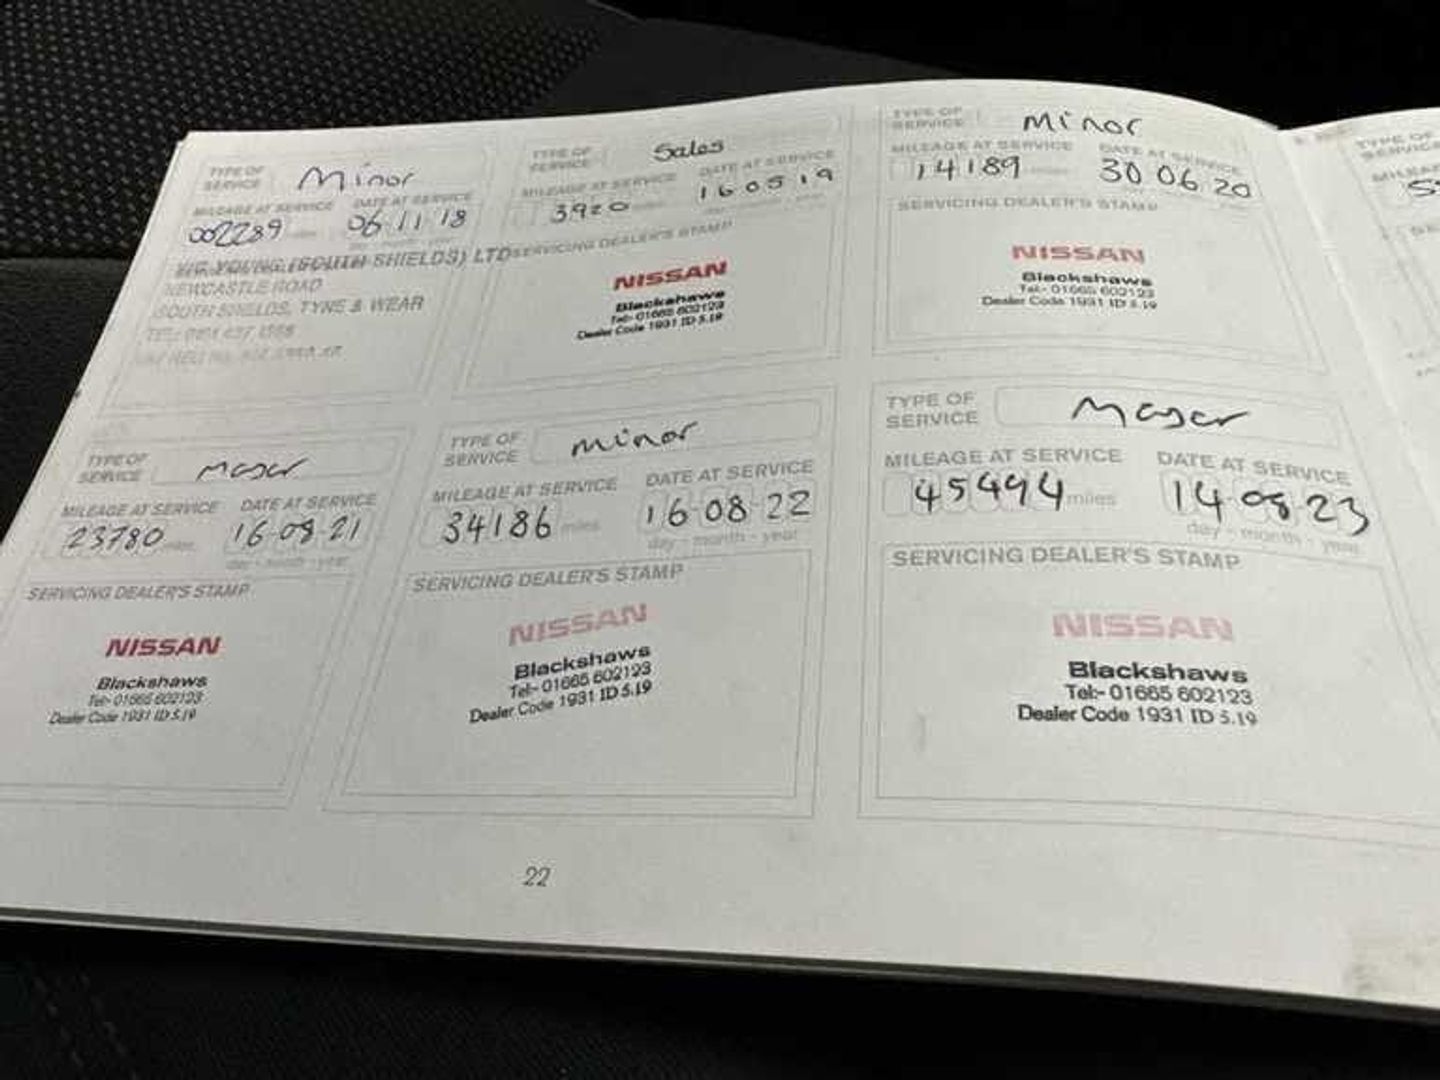 TYPE OF SERVICE Minor
MILEAGE AT SERVICE DATE AT SERVICE
002289 miles 06 11 18
day - month - year
(SOUTH SHIELDS) LTD
NEWCASTLE ROAD
SOUTH SHIELDS, TYNE & WEAR
TYPE OF SERVICE Sales
MILEAGE AT SERVICE DATE AT SERVICE
3920 miles 16 05 19
SERVICING DEALER'S STAMP
NISSAN
Blackshaws
Tel:- 01665 602123
Dealer Code 1931 ID 5.19
TYPE OF SERVICE Minor
MILEAGE AT SERVICE DATE AT SERVICE
14189 miles 30 06 20
SERVICING DEALER'S STAMP
NISSAN
Blackshaws
Tel:- 01665 602123
Dealer Code 1931 ID 5.19
TYPE OF SERVICE Major
MILEAGE AT SERVICE DATE AT SERVICE
23780 miles 16-08-21
day - month - year
SERVICING DEALER'S STAMP
NISSAN
Blackshaws
Tel:- 01665 602123
Dealer Code 1931 ID 5.19
TYPE OF SERVICE minor
MILEAGE AT SERVICE DATE AT SERVICE
34186 miles 16-08-22
day - month - year
SERVICING DEALER'S STAMP
NISSAN
Blackshaws
Tel:- 01665 602123
Dealer Code 1931 ID 5.19
TYPE OF SERVICE Major
MILEAGE AT SERVICE DATE AT SERVICE
45494 miles 14-08-23
day - month - year
SERVICING DEALER'S STAMP
NISSAN
Blackshaws
Tel:- 01665 602123
Dealer Code 1931 ID 5.19
22